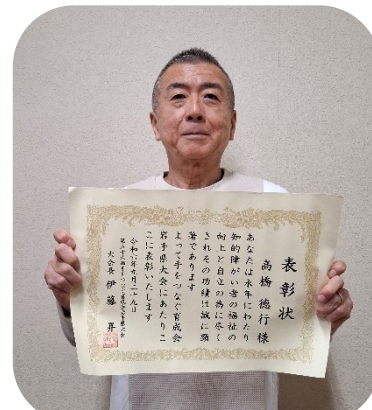 表彰状
高橋徳行様
あなたは永年にわたり
知的障がい者の福祉の
向上と自立の為に尽く
されその功績は誠に顕
著であります
よって手をつなぐ育成会
岩手県大会にあたりこ
こに表彰いたします
令和六年九月二十九日
大会長 伊藤昇